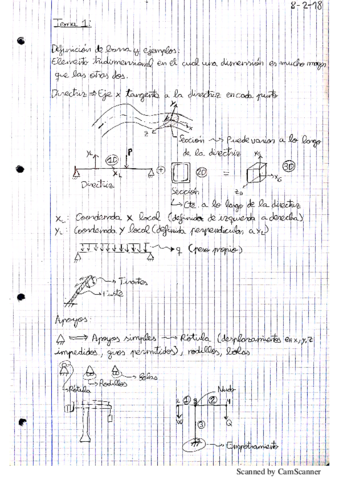 8-2-18
Tema 1:
Definición de barra y ejemplos:
Elemento tridimensional en el cual una dimensión es mucho mayor
que las otras dos.
Directriz ⇒ Eje x tangente a la directriz en cada punto
Sección ⟿ Puede variar a lo largo
de la directriz
1D
P
2D
3D
Directriz
Sección
Cte. a lo largo de la directriz
XL: Coordenada X local (definida de izquierda a derecha)
YL: Coordenada Y local (definida perpendicular a XL)
q (peso propio)
Tirantes
Apoyos:
⟹ Apoyos simples ⟿ Rótula (desplazamientos en x, y, z
impedidos, giros permitidos), rodillos, bolas
Bolas
Rodillos
Rótula
Nudo
1
2
3
Q
Empotramiento
Scanned by CamScanner